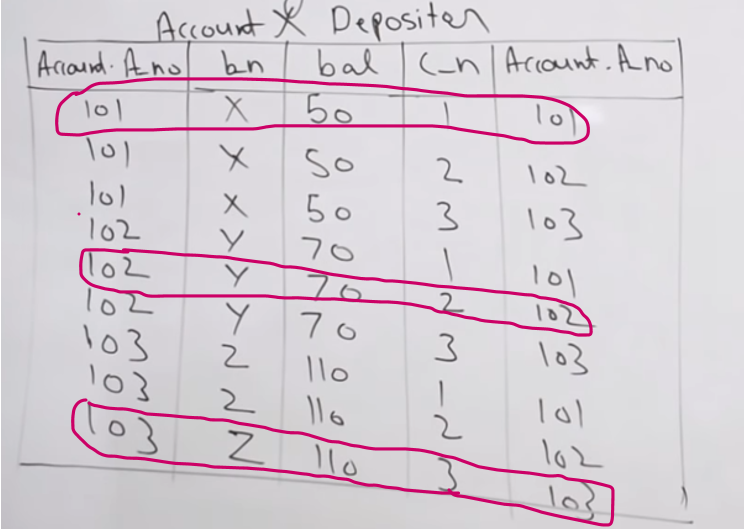 Account X Depositer
Account. A_no bn bal C_n Account. A_no
101 X 50 1 101
101 X 50 2 102
101 X 50 3 103
102 Y 70 1 101
102 Y 70 2 102
102 Y 70 3 103
103 Z 110 1 101
103 Z 110 2 102
103 Z 110 3 103